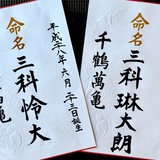 命名
三科琳大朗
千鶴萬亀
平成二十八年六月二十三日生
命名
三科怜大